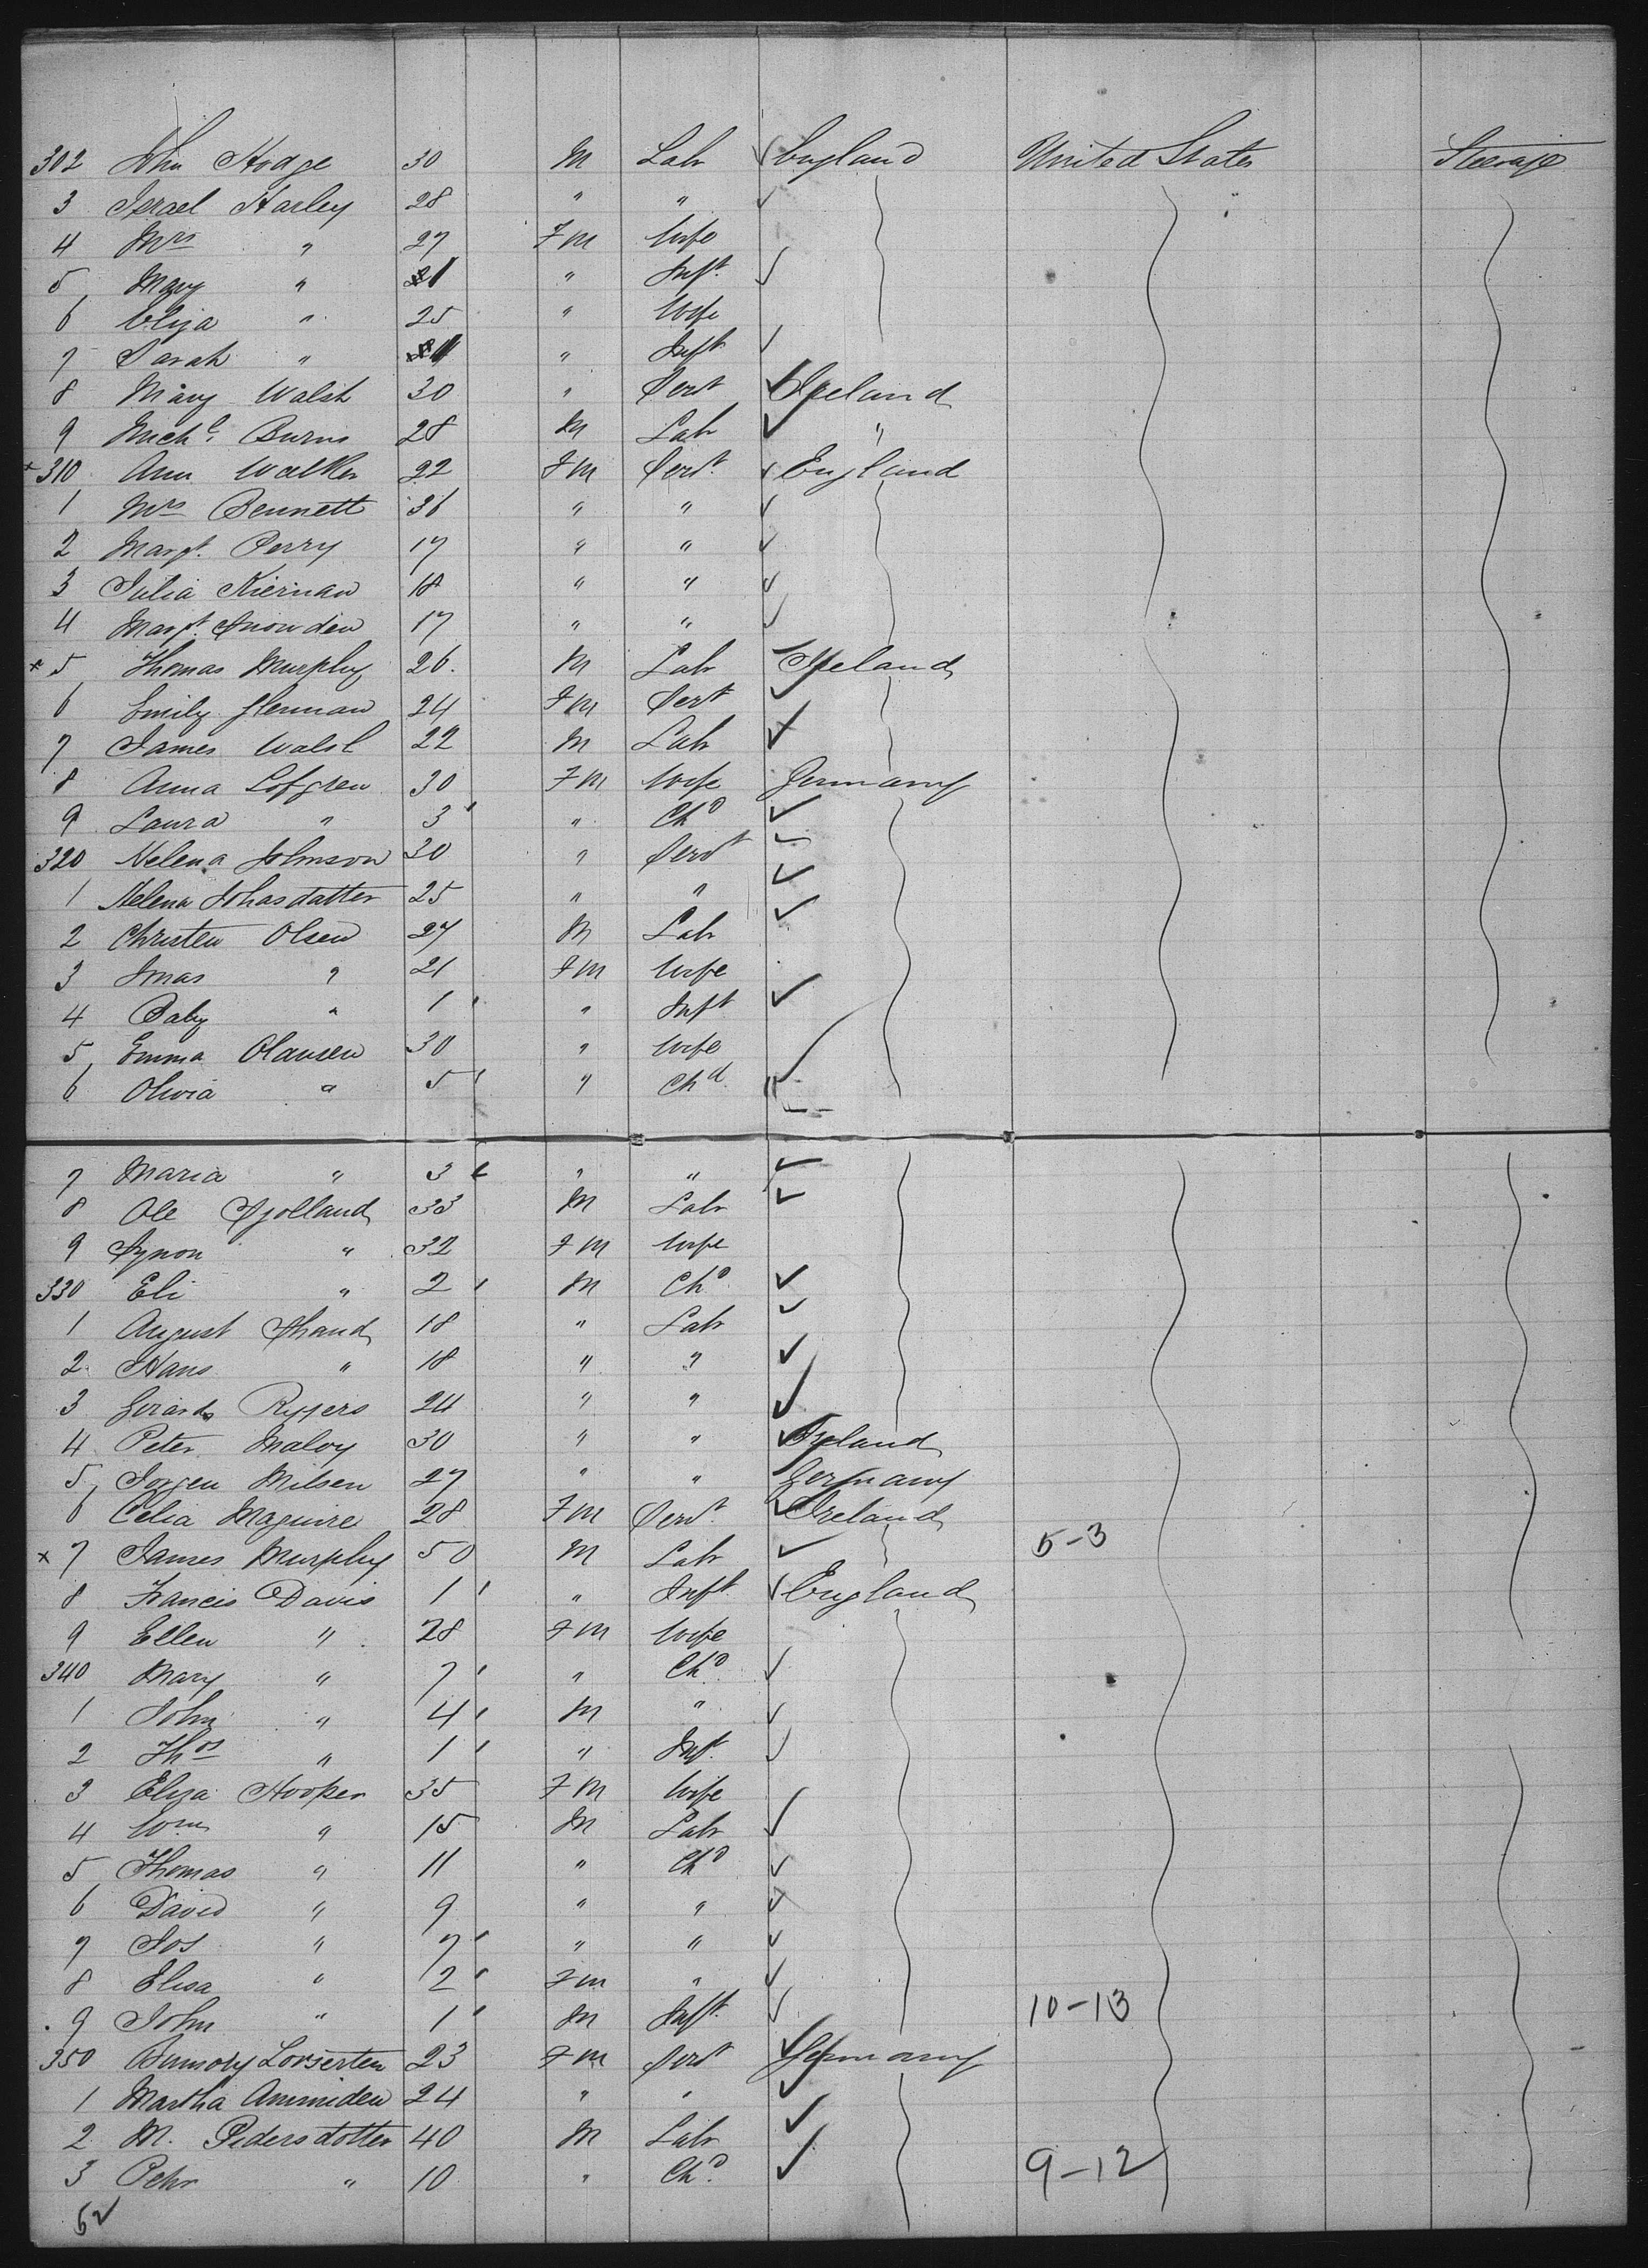 302 John Hodge 30 M Labr England United States Steerage
3 Israel Harley 28 " "
4 Mrs " 27 Fm Wife
5 Mary " 1 " Inft
6 Eliza " 25 " Wife
7 Sarah " " Inft
8 Mary Walsh 30 " Servt Ireland
9 Michl Burns 28 M Labr "
x 310 Ann Walker 22 Fm Servt England
1 Mrs Bennett 36 " "
2 Margt Perry 17 " "
3 Julia Kiernan 18 " "
4 Margt Snowden 17 " "
x 5 Thomas Murphy 26 M Labr Ireland
6 Emily 24 Fm Servt
7 James Walsh 22 M Labr
8 Anna Lofgren 30 Fm Wife Germany
9 Laura " 3 " Chd
320 Helena Johnson 30 " Servt
1 Helena Johasdatter 25 " "
2 Christen Olsen 27 M Labr
3 " 21 Fm Wife
4 Baby " 1 " Inft
5 Emma Olausen 30 " Wife
6 Olivia " 5 " Chd
7 Maria " 3 " "
8 Ole 33 M Labr
9 " 32 Fm Wife
330 Eli " 2 M Chd
1 August 18 " Labr
2 Hans " 18 " "
3 24 " "
4 Peter Maloy 30 " " Ireland
5 Jorgen Nilsen 27 " " Germany
6 Celia Maguire 28 Fm Servt Ireland
x 7 James Murphy 50 M Labr 5-3
8 Francis Davis 1 " Inft England
9 Ellen " 28 Fm Wife
340 Mary " 7 " Chd
1 John " 4 M "
2 Thos " 1 " Inft
3 Eliza Hooper 35 Fm Wife
4 Wm " 15 M Labr
5 Thomas " 11 " Chd
6 David " 9 " "
7 Jos " 7 " "
8 Elisa " 2 Fm "
9 John " 1 M Inft 10-13
350 23 Fm Servt Germany
1 Martha 24 " "
2 M. Pedersdotter 40 M Labr
3 Pehr " 10 " Chd 9-12
52